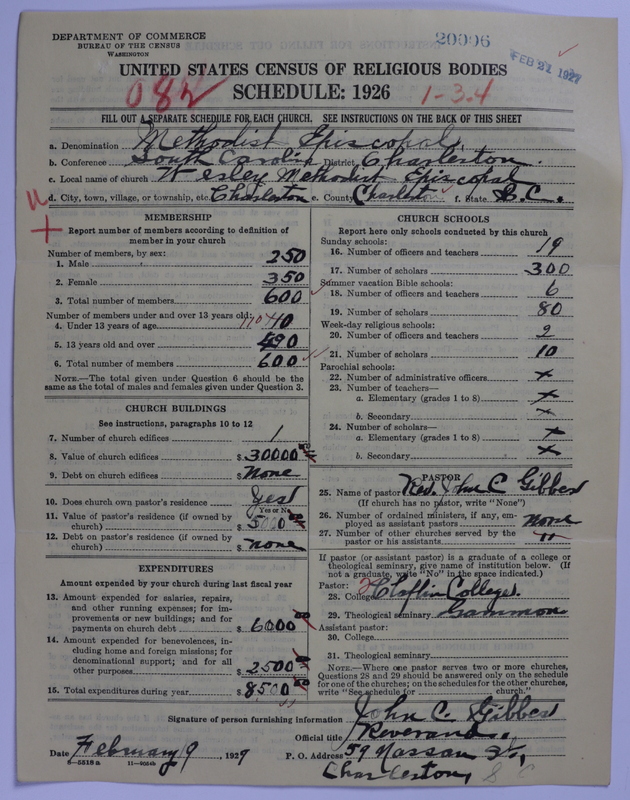 DEPARTMENT OF COMMERCE
BUREAU OF THE CENSUS
WASHINGTON
20006
FEB 21 1927
UNITED STATES CENSUS OF RELIGIOUS BODIES
082
SCHEDULE: 1926
1-3.4
FILL OUT A SEPARATE SCHEDULE FOR EACH CHURCH. SEE INSTRUCTIONS ON THE BACK OF THIS SHEET
a. Denomination Methodist Episcopal
b. Conference South Carolina District Charleston.
c. Local name of church Wesley Methodist Episcopal
d. City, town, village, or township, etc. Charleston e. County Charleston f. State S.C.
MEMBERSHIP
Report number of members according to definition of
member in your church
Number of members, by sex:
1. Male 250
2. Female 350
3. Total number of members 600
Number of members under and over 13 years old:
4. Under 13 years of age 110
5. 13 years old and over 490
6. Total number of members 600
NOTE.—The total given under Question 6 should be the
same as the total of males and females given under Question 3.
CHURCH BUILDINGS
See instructions, paragraphs 10 to 12
7. Number of church edifices 1
8. Value of church edifices $ 30000 00
9. Debt on church edifices $ None
10. Does church own pastor's residence Yes
Yes or No
11. Value of pastor's residence (if owned by
church) $ 5000 00
12. Debt on pastor's residence (if owned by
church) $ none
EXPENDITURES
Amount expended by your church during last fiscal year
13. Amount expended for salaries, repairs,
and other running expenses; for im-
provements or new buildings; and for
payments on church debt $ 6000 00
14. Amount expended for benevolences, in-
cluding home and foreign missions; for
denominational support; and for all
other purposes $ 2500 00
15. Total expenditures during year $ 8500 00
CHURCH SCHOOLS
Report here only schools conducted by this church
Sunday schools:
16. Number of officers and teachers 19
17. Number of scholars 300
Summer vacation Bible schools:
18. Number of officers and teachers 6
19. Number of scholars 80
Week-day religious schools:
20. Number of officers and teachers 2
21. Number of scholars 10
Parochial schools:
22. Number of administrative officers x
23. Number of teachers—
a. Elementary (grades 1 to 8) x
b. Secondary x
24. Number of scholars—
a. Elementary (grades 1 to 8) x
b. Secondary x
PASTOR
25. Name of pastor Rev. John C Gibbes
(If church has no pastor, write "None")
26. Number of ordained ministers, if any, em-
ployed as assistant pastors none
27. Number of other churches served by the
pastor or his assistants "
If pastor (or assistant pastor) is a graduate of a college or
theological seminary, give name of institution below. (If
not a graduate, write "No" in the space indicated.)
Pastor:
28. College Claflin College
29. Theological seminary Gammon
Assistant pastor:
30. College
31. Theological seminary
NOTE.—Where one pastor serves two or more churches,
Questions 28 and 29 should be answered only on the schedule
for one of the churches; on the schedules for the other churches,
write "See schedule for church."
Signature of person furnishing information John C. Gibbes
Official title Reverend,
Date February 9, 1927 P. O. Address 59 Nassau St,
8—5518 a
Charleston, S C